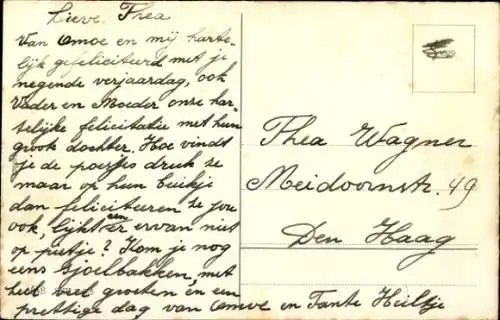 Lieve. Thea
Van Omoe en mij harte-
lijk gefeliciteerd met je
negende verjaardag, ook
Vader en Moeder onze har-
telijke felicitatie met hun
groote dochter. Hoe vindt
je de poesjes druk ze
maar op hun buikje
dan feliciteeren ze jou
ook, lijkt er een ervan niet
op pietje? Kom je nog
eens sjoelbakken, met
heel veel groeten en een
prettige dag van Omoe en Tante Heiltje
Thea Wagner
Meidoornstr. 49
Den Haag